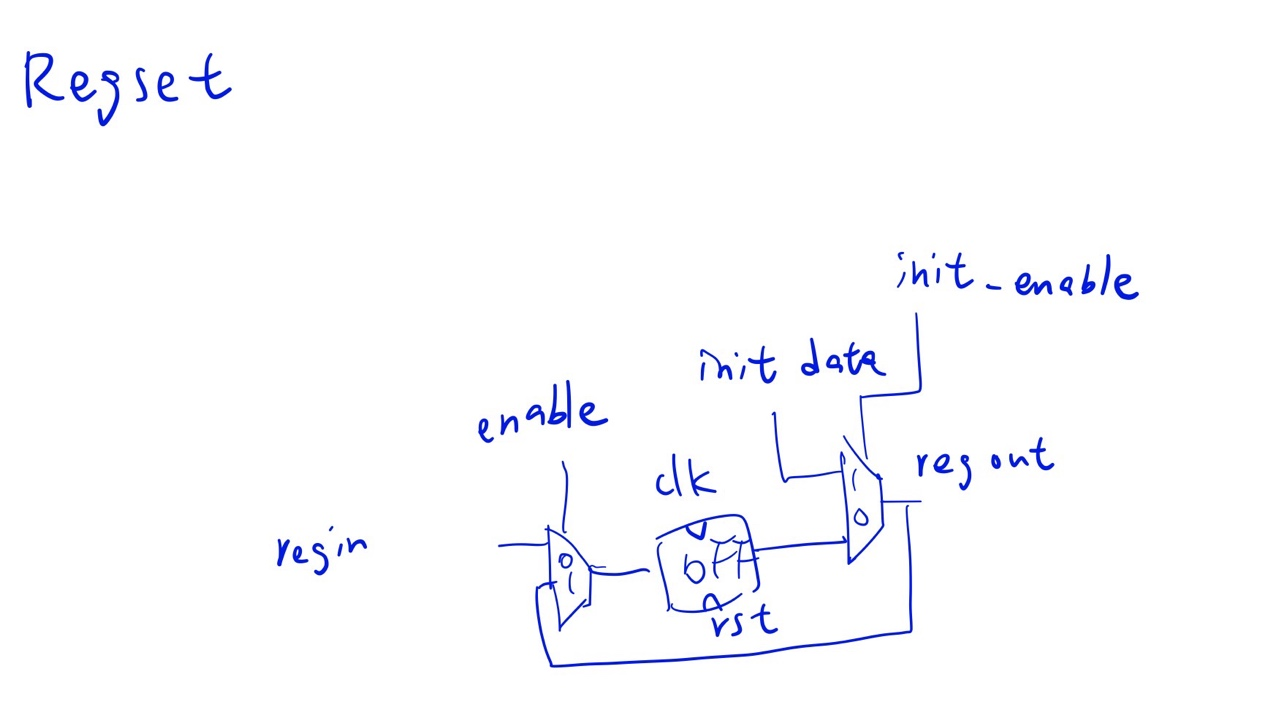 Regset
init_enable
init data
enable
regout
clk
regin
0
1
DFF
1
0
rst